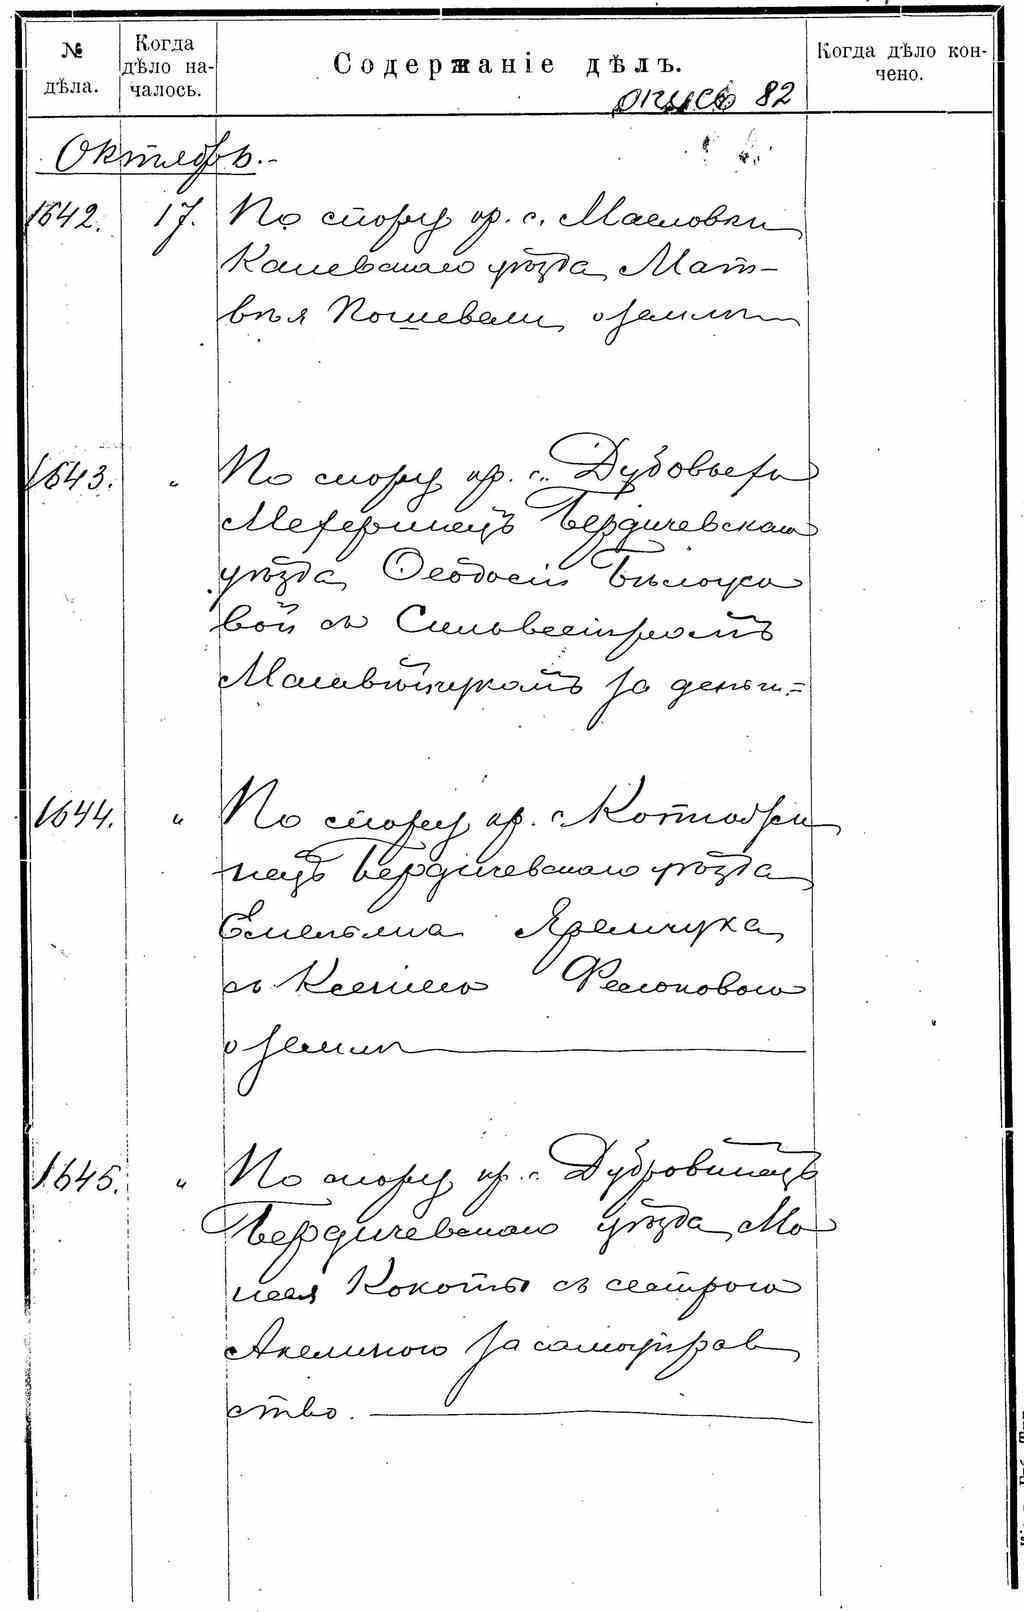 № дѣла.
Когда дѣло на-
чалось.
Содержаніе дѣлъ.
Когда дѣло кон-
чено.
опись 82
Октябрь.
1642. 17. По спору кр. с. Масловки
Каневскаго уѣзда Мат-
вѣя Кошевали о землѣ
1643. " По спору кр. с.
Бердичевскаго
уѣзда Ѳеодосіи
вой съ Сильвестромъ
за деньги.=
1644. " По спору кр. с.
нецъ Бердичевскаго уѣзда
Емельяна Яремчука
съ Ксеніею
о землѣ
1645. " По спору кр. с. Дубровинецъ
Бердичевскаго уѣзда Мо
исея Кокоты съ сестрою
Акелиною за самоуправ
ство.